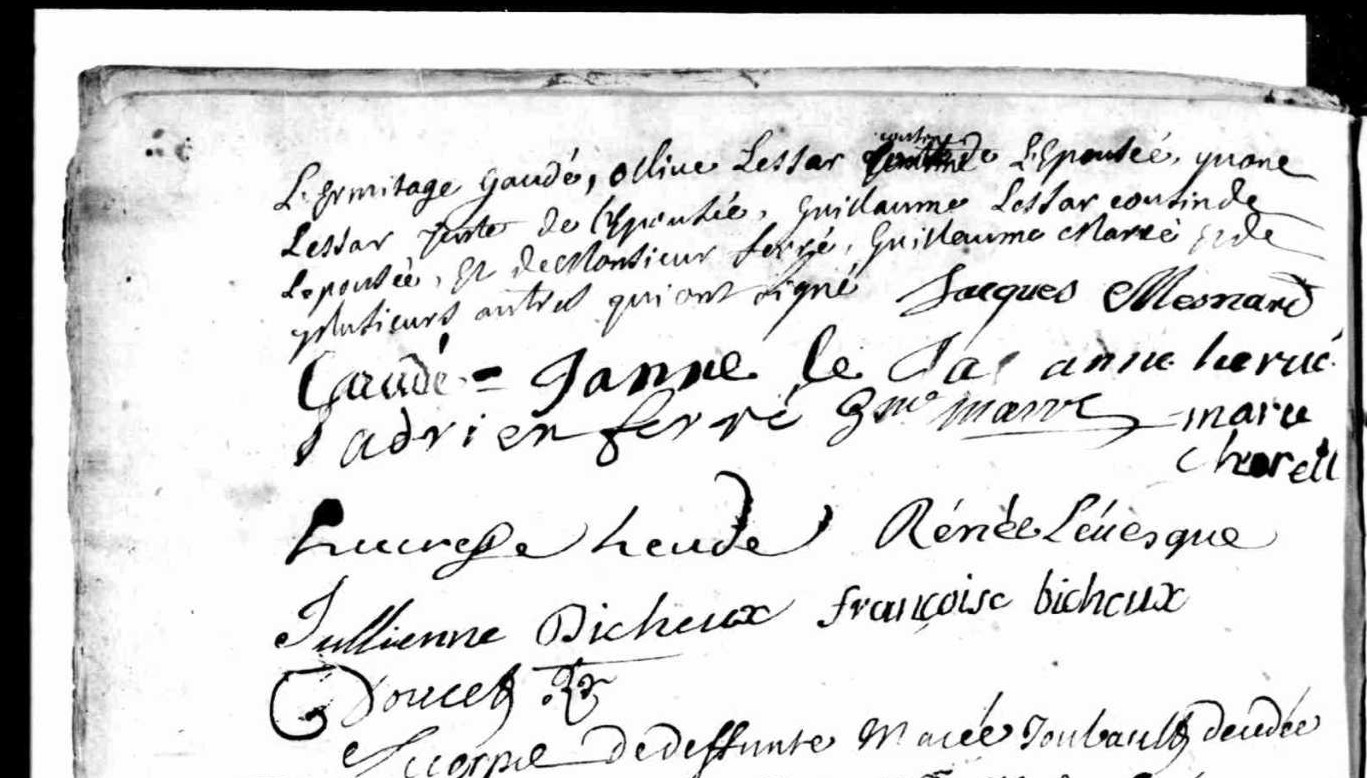 L'Ermitage Gaudé, ollive Lessar cousine de L'Epousée, yvone
Lessar tente de l'Epousée, Guillaume Lessar cousin de
Lepousée, Et de Monsieur ferré, Guillaume Marié, et de
plusieurs autres qui ont signé Jacques Mesnard
Gaudé = Janne le anne herué
adrien ferré Gme marie
Chorell
Lucresse heude Rénée Léuesque
Jullienne Bicheux françoise bicheux
Doucet
Le corps de deffunte Macée Joubault decedée